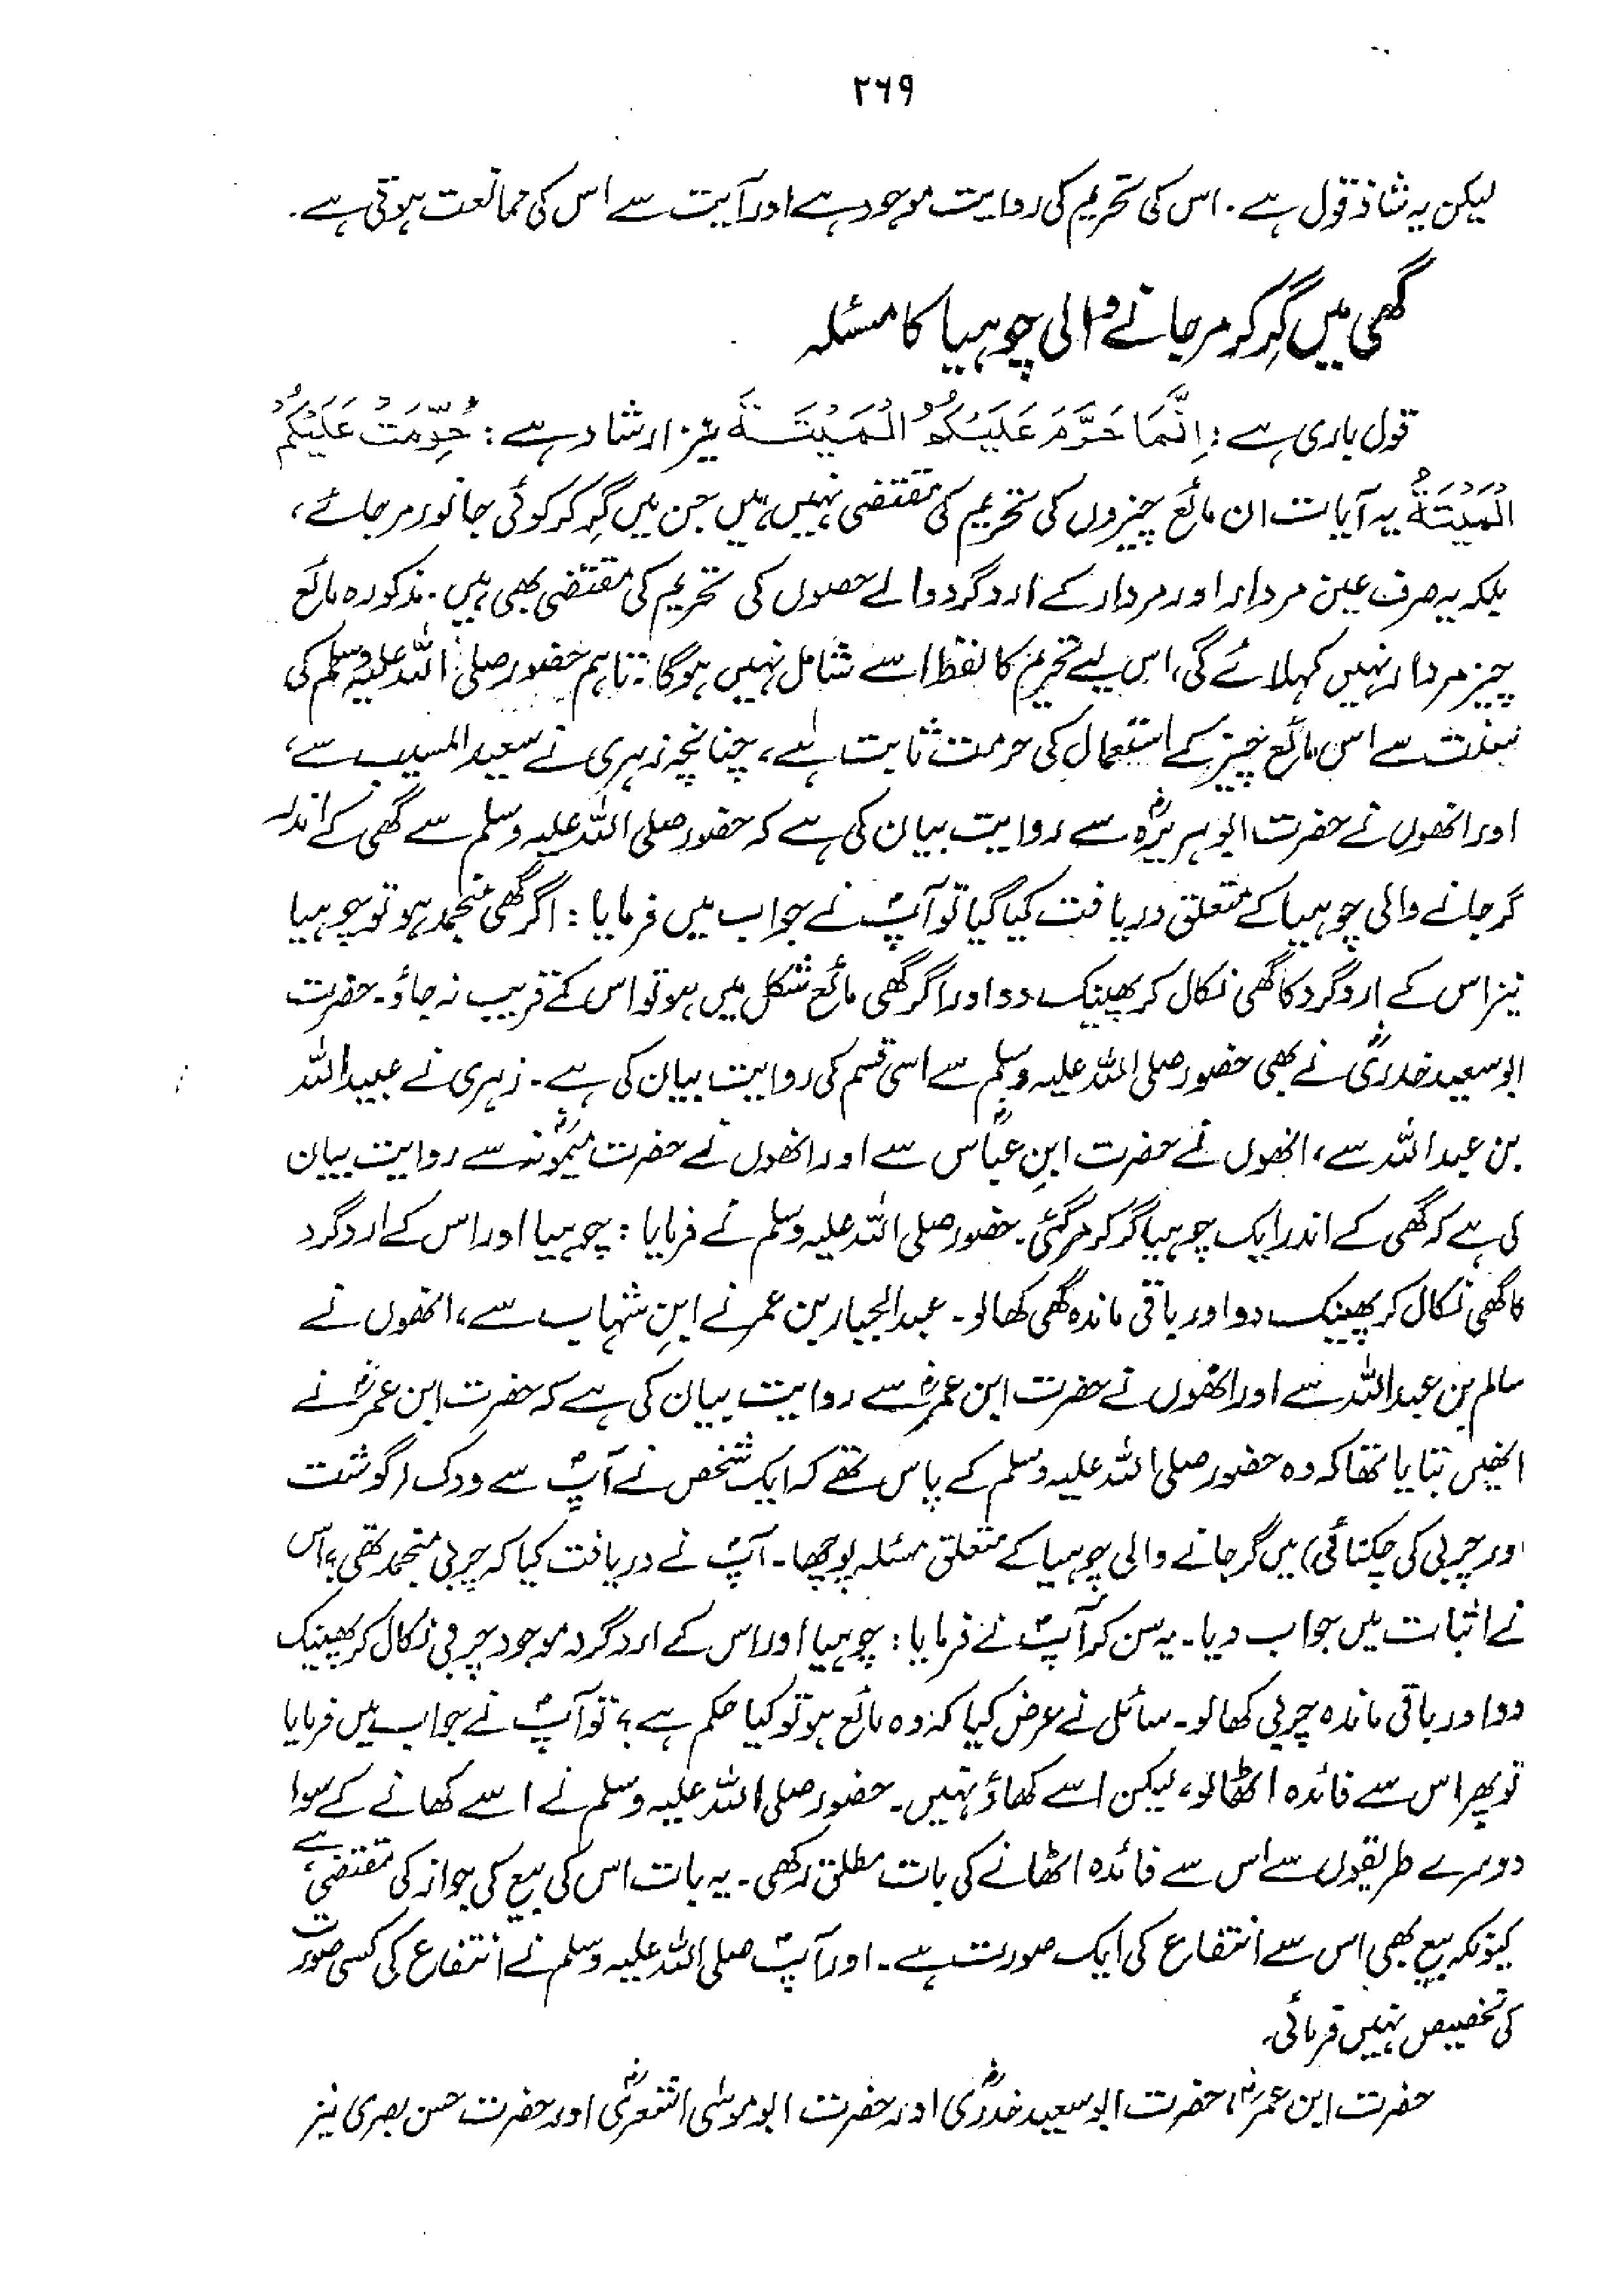 ۲۶۹
لیکن یہ شاذ قول ہے۔ اس کی تحریم کی روایت موجود ہے اور آیت سے اس کی ممانعت ہوتی ہے۔
گھی میں گِر کر مرجانے والی چوہیا کا مسئلہ
قول باری ہے: اِنَّمَا حَرَّمَ عَلَیْکُمُ الْمَیْتَةَ نیز ارشاد ہے: حُرِّمَتْ عَلَیْکُمُ
الْمَیْتَةُ یہ آیات ان مائع چیزوں کی تحریم کی مقتضی نہیں ہیں جن میں گِر کر کوئی جانور مرجائے،
بلکہ یہ صرف عین مردار اور مردار کے اردگرد والے حصوں کی تحریم کی مقتضی بھی ہیں۔ مذکورہ مائع
چیز مردار نہیں کہلائے گی، اس لیے تحریم کا لفظ اسے شامل نہیں ہوگا۔ تاہم حضور صلی اللہ علیہ وسلم کی
سنت سے اس مائع چیز کے استعمال کی حرمت ثابت ہے، چنانچہ زہری نے سعید المسیب سے،
اور انھوں نے حضرت ابوہریرہؓ سے روایت بیان کی ہے کہ حضور صلی اللہ علیہ وسلم سے گھی کے اندر
گر جانے والی چوہیا کے متعلق دریافت کیا گیا تو آپؐ نے جواب میں فرمایا: اگر گھی منجمد ہو تو چوہیا
نیز اس کے اردگرد کا گھی نکال کر پھینک دو اور اگر گھی مائع شکل میں ہو تو اس کے قریب نہ جاؤ۔ حضرت
ابوسعید خدریؓ نے بھی حضور صلی اللہ علیہ وسلم سے اسی قسم کی روایت بیان کی ہے۔ زہری نے عبید اللہ
بن عبداللہ سے، انھوں نے حضرت ابنِ عباسؓ سے اور انھوں نے حضرت میمونہؓ سے روایت بیان
کی ہے کہ گھی کے اندر ایک چوہیا گر کر مر گئی۔ حضور صلی اللہ علیہ وسلم نے فرمایا: چوہیا اور اس کے اردگرد
کا گھی نکال کر پھینک دو اور باقی ماندہ گھی کھالو۔ عبدالجبار بن عمر نے ابنِ شہاب سے، انھوں نے
سالم بن عبداللہ سے اور انھوں نے حضرت ابن عمرؓ سے روایت بیان کی ہے کہ حضرت ابن عمرؓ نے
انھیں بتایا تھا کہ وہ حضور صلی اللہ علیہ وسلم کے پاس تھے کہ ایک شخص نے آپؐ سے ودک (گوشت
اور چربی کی چکنائی) میں گر جانے والی چوہیا کے متعلق مسئلہ پوچھا۔ آپؐ نے دریافت کیا کہ چربی منجمد تھی؟ اس
نے اثبات میں جواب دیا۔ یہ سن کر آپؐ نے فرمایا: چوہیا اور اس کے اردگرد موجود چربی نکال کر پھینک
دو اور باقی ماندہ چربی کھالو۔ سائل نے عرض کیا کہ وہ مائع ہو تو کیا حکم ہے؟ تو آپؐ نے جواب میں فرمایا
تو پھر اس سے فائدہ اٹھالو، لیکن اسے کھاؤ نہیں۔ حضور صلی اللہ علیہ وسلم نے اسے کھانے کے سوا
دوسرے طریقوں سے اس سے فائدہ اٹھانے کی بات مطلق رکھی۔ یہ بات اس کی بیع کی جواز کی مقتضی ہے
کیونکہ بیع بھی اس سے انتفاع کی ایک صورت ہے۔ اور آپؐ صلی اللہ علیہ وسلم نے انتفاع کی کسی صورت
کی تخصیص نہیں فرمائی۔
حضرت ابن عمرؓ، حضرت ابوسعید خدریؓ اور حضرت ابوموسٰی اشعریؓ اور حضرت حسن بصری نیز